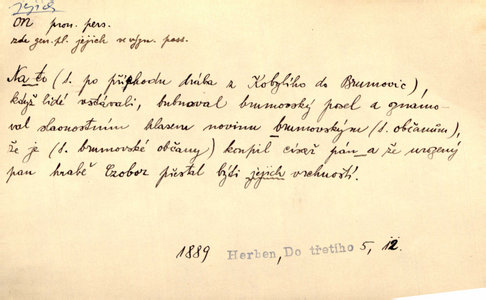 jejich
on pron. pers.
zde gen. pl. jejich ve význ. poss.
Na to (t. po příchodu drába z Kobylího do Brumovic),
když lidé vstávali, bubnoval brumovský posel a gnamo-
val slavnostním hlasem novinu brumovským (t. občanům),
že je (t. brumovské občany) koupil císař pán a že urozený
pan hrabě Czobor přestal býti jejich vrchností.
1889 Herben, Do třetího 5, 12.